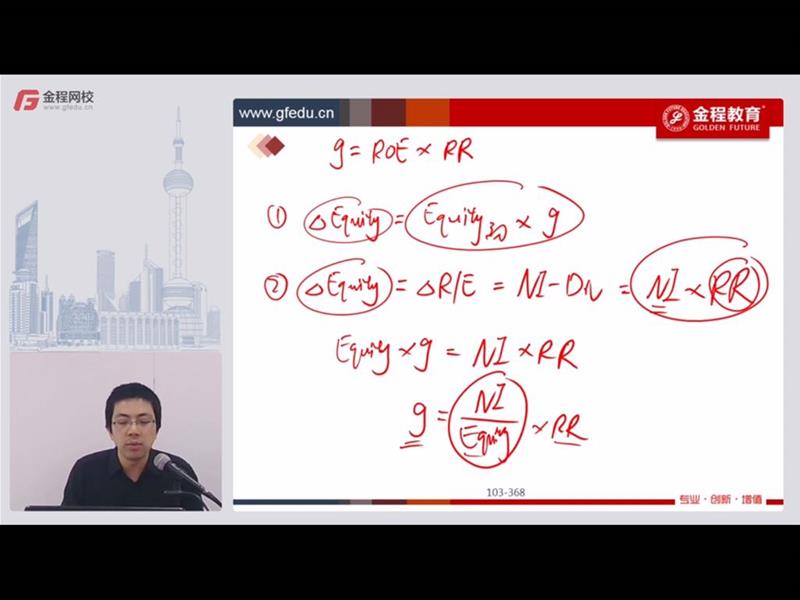 金程网校
www.gfedu.cn
www.gfedu.cn
金程教育
GOLDEN FUTURE
g = ROE × RR
① △Equity = Equity初 × g
② △Equity = △R/E = NI - Div = NI × RR
Equity × g = NI × RR
g = NI / Equity × RR
103-368
专业·创新·增值